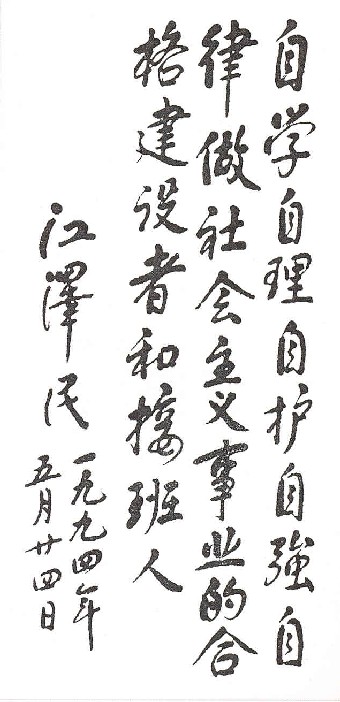 自学自理自护自強自
律做社会主义事业的合
格建设者和接班人
江澤民
一九九四年
五月廿四日